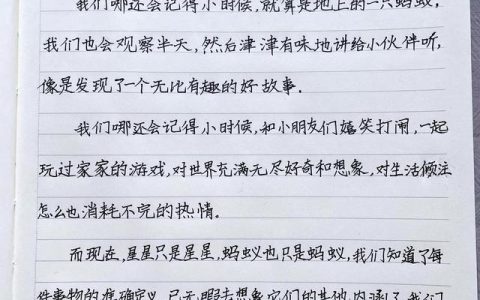 我们哪还会记得小时候,就算是地上的一只蚂蚁,
我们也会观察半天,然后津津有味地讲给小伙伴听,
像是发现了一个无比有趣的好故事.
我们哪还会记得小时候,和小朋友们嬉笑打闹,一起
玩过家家的游戏,对世界充满无尽好奇和想象,对生活倾注
怎么也消耗不完的热情.
而现在,星星只是星星,蚂蚁也只是蚂蚁,我们知道了每
件事物的准确定义,已无暇去想象它们的其他内涵了.我们